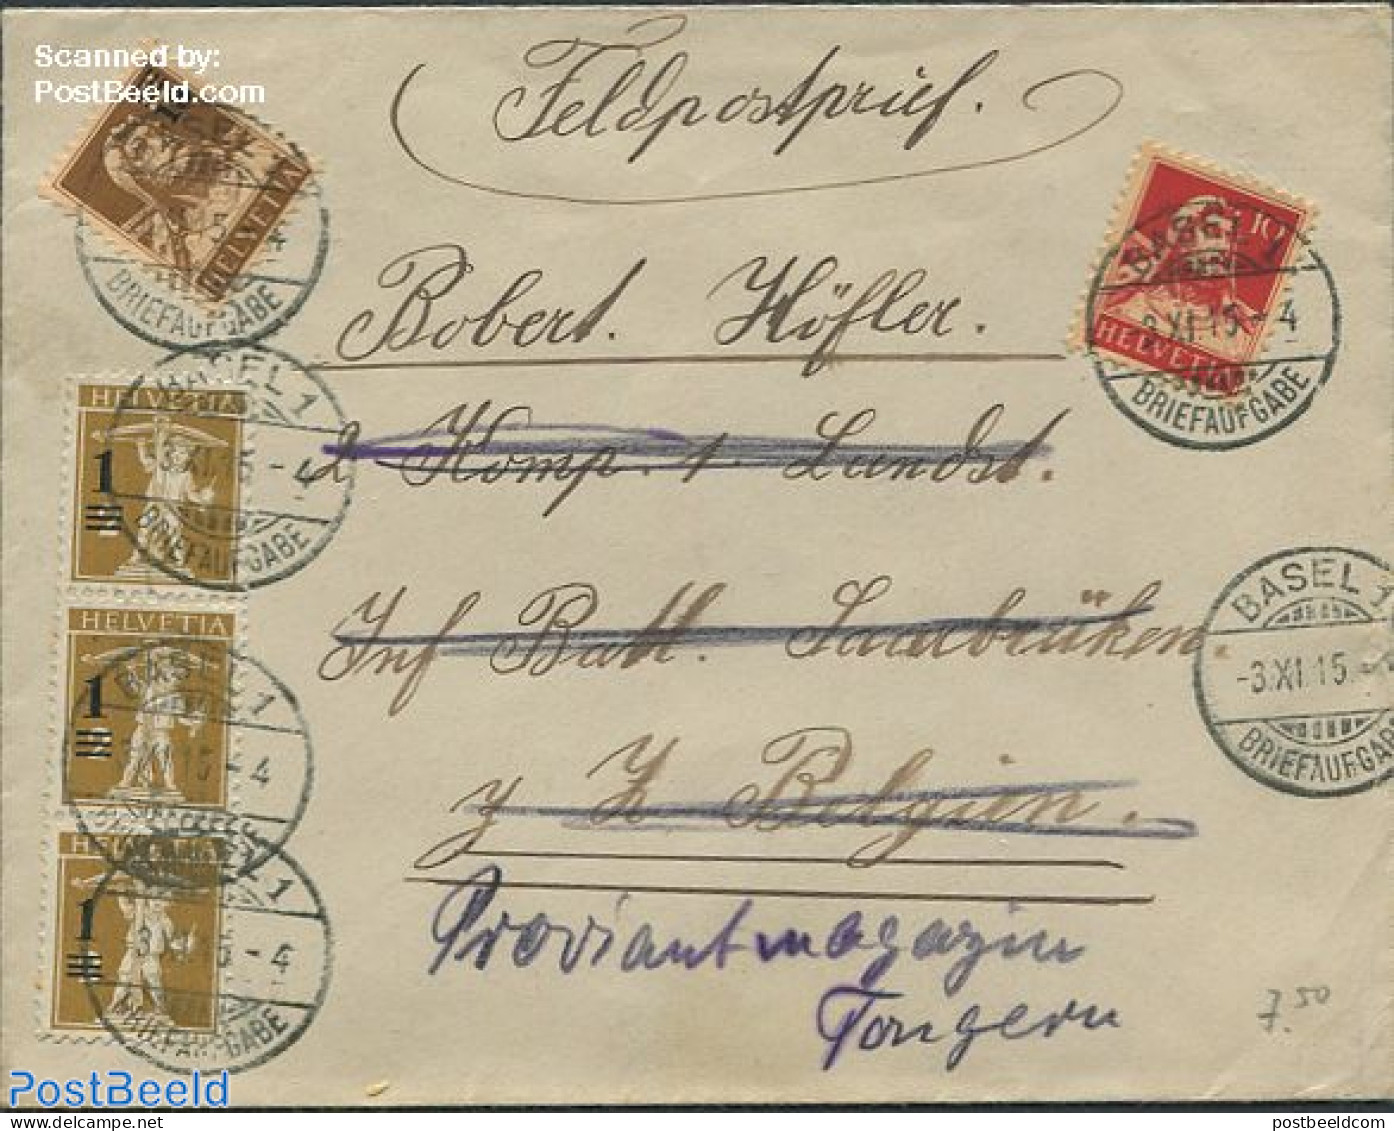 Scanned by:
PostBeeld.com
Feldpostprief.
HELVETIA
BASEL 1
BRIEFAUFGABE
10
HELVETIA
BASEL 1
3.XI.15.-4
BRIEFAUFGABE
Robert. Höfler.
2 Komp. 1. Landst.
Inf Batt. Saarbrüken.
z Z Belgien.
Proviantmagazin
Tongern
HELVETIA
1
BASEL 1
3.XI.15-4
BRIEFAUFGABE
HELVETIA
1
BASEL 1
XI.15-4
HELVETIA
1
BRIEFAUFGABE
BASEL 1
-3.XI.15.-
BRIEFAUFGABE
7.50
PostBeeld
postbeeldcom